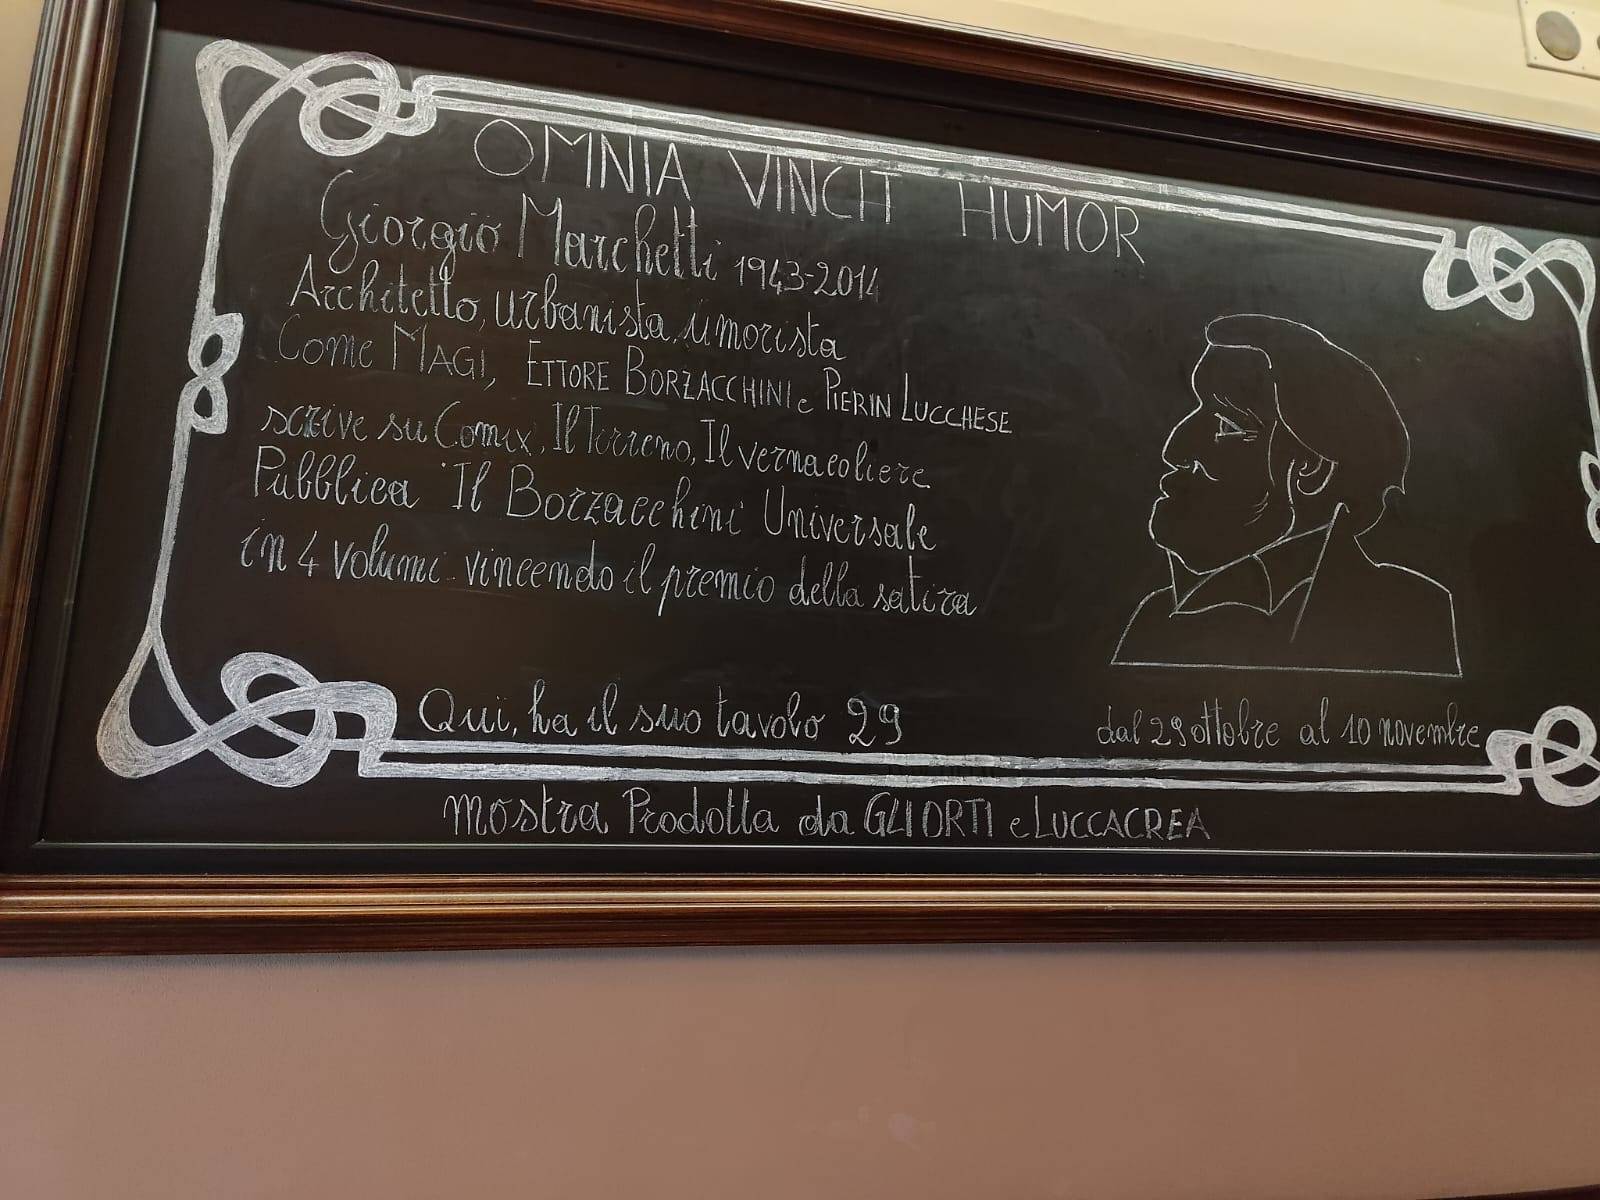 OMNIA VINCIT HUMOR
Giorgio Marchetti 1943-2014
Architetto, urbanista, umorista
Come MAGI, ETTORE BORZACCHINI e PIERIN LUCCHESE
scrive su Comix, Il Tirreno, Il vernacoliere
Pubblica "Il Borzacchini" Universale
in 4 volumi vincendo il premio della satira
Qui, ha il suo tavolo 29
dal 29 ottobre al 10 novembre
Mostra Prodotta da GLI ORTI e LUCCACREA